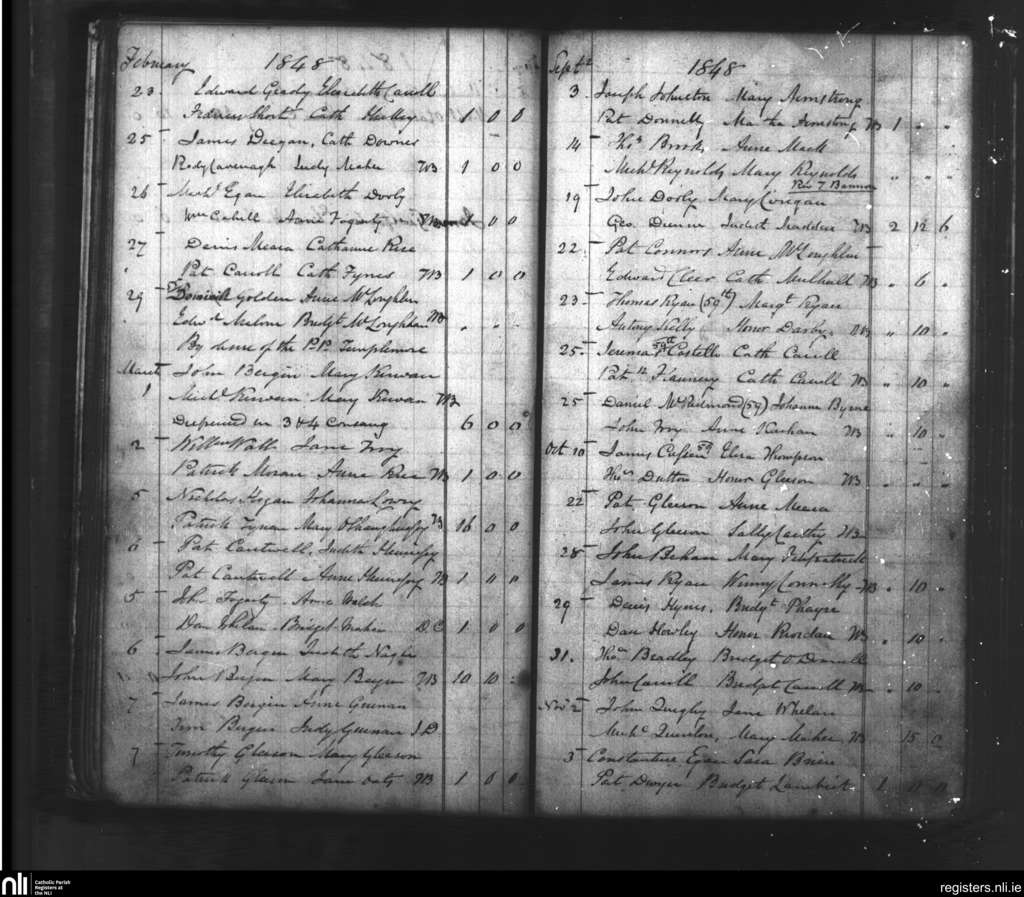 February 1848
23 Edward Grady Elizabeth Carroll
Francis Short Cath 1 0 0
25 James Deegan, Cath Downes
Rody Cavenagh Judy Maher TB 1 0 0
26 Michl Egan Elizabeth Dooly
Wm Cahill Anne Fogarty 0 0
27 Denis Meara Catharine Rice
Pat Carroll Cath Fynes TB 1 0 0
29 Dominick Golden Anne McLoughlin
Edwd Malone Bridgt McLoughlin TB " " "
By desire of the P.P. Templemore
March John Bergin Mary Kirwan
1 Michl Kirwan Mary Kirwan TB
Dispensed in 3 & 4 Consang 6 0 0
2 Willm Wall Jane Troy
Patrick Moran Anne Rice TB 1 0 0
5 Nicholas Hogan Johanna Lowry
Patrick Tynan Mary TB 16 0 0
6 Pat Cantwell, Judith Hennessy
Pat Cantwell Anne Hennessy TB 1 0 0
5 John Fogarty Anne Walsh
Dan Whelan Bridget Maher D.C 1 0 0
6 James Bergin Judith Nagle
John Bergin Mary Bergin TB 10 10
7 James Bergin Anne Guinan
Tim Bergin Judy Guinan J.D
7 Timothy Gleeson Mary Gleeson
Patrick Gleeson Jane Oats TB 1 0 0
Septr 1848
3 Joseph Johnston Mary Armstrong
Pat Donnelly Armstrong TB 1 " "
14 Thos Brooks Anne Mack
Michl Reynolds Mary Reynolds " " "
Revd T Bannon
19 John Dooly Mary Corrigan
Geo Dunne Judith Madden TB 2 12 6
22 Pat Connors Anne McLoughlin
Edward Cleer Cath Mulhall TB " 6 "
23 Thomas Ryan (59th) Margt Ryan
Antony Kelly Honor Darby TB " 10 "
25 Jeremia 59th Costello Cath Carroll
Patk Flannery Cath Carroll TB " 10 "
25 Daniel McRedmond (59) Johanna Byrne
John Troy Anne TB " 10 "
Oct 10 James 59 Eliza Thompson
Thos Dutton Honor Gleeson TB " " "
22 Pat Gleeson Anne Meara
John Gleeson Sally Carthy TB
28 John Behan Mary Fitzpatrick
James Ryan Winny Connolly TB " 10 "
29 Denis Hynes, Bridgt Phayre
Dan Howley Honor Riordan TB " 10 "
31. Thos Bradley Bridget O Donnell
John Carroll Bridget Carroll TB " 10 "
Nov 2 John Quigly Jane Whelan
Michl Quinlan, Mary Maher TB 15 0
3 Constantine Egan Sara Brien
Pat Dwyer Bridget Lambert 1 0 0
nli Catholic Parish
Registers at
the NLI
registers.nli.ie